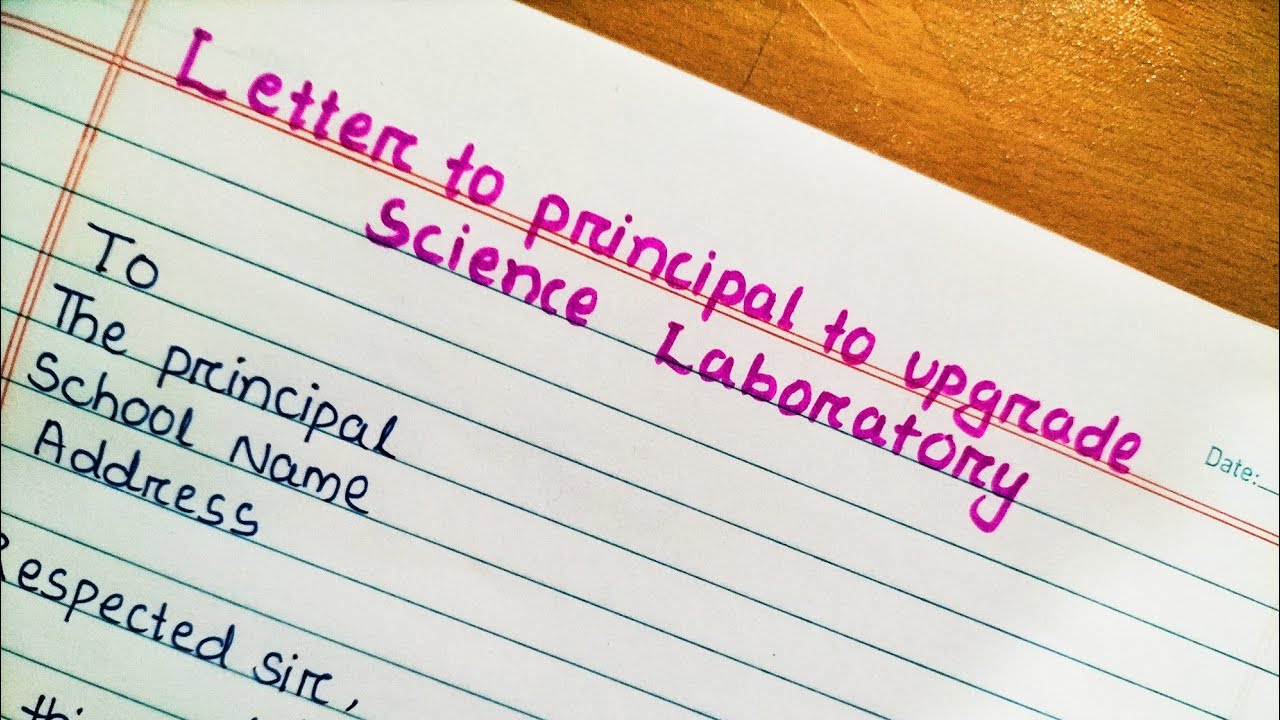 Letter to principal to upgrade
Science Laboratory
Date:
To
The principal
School Name
Address
Respected sir,